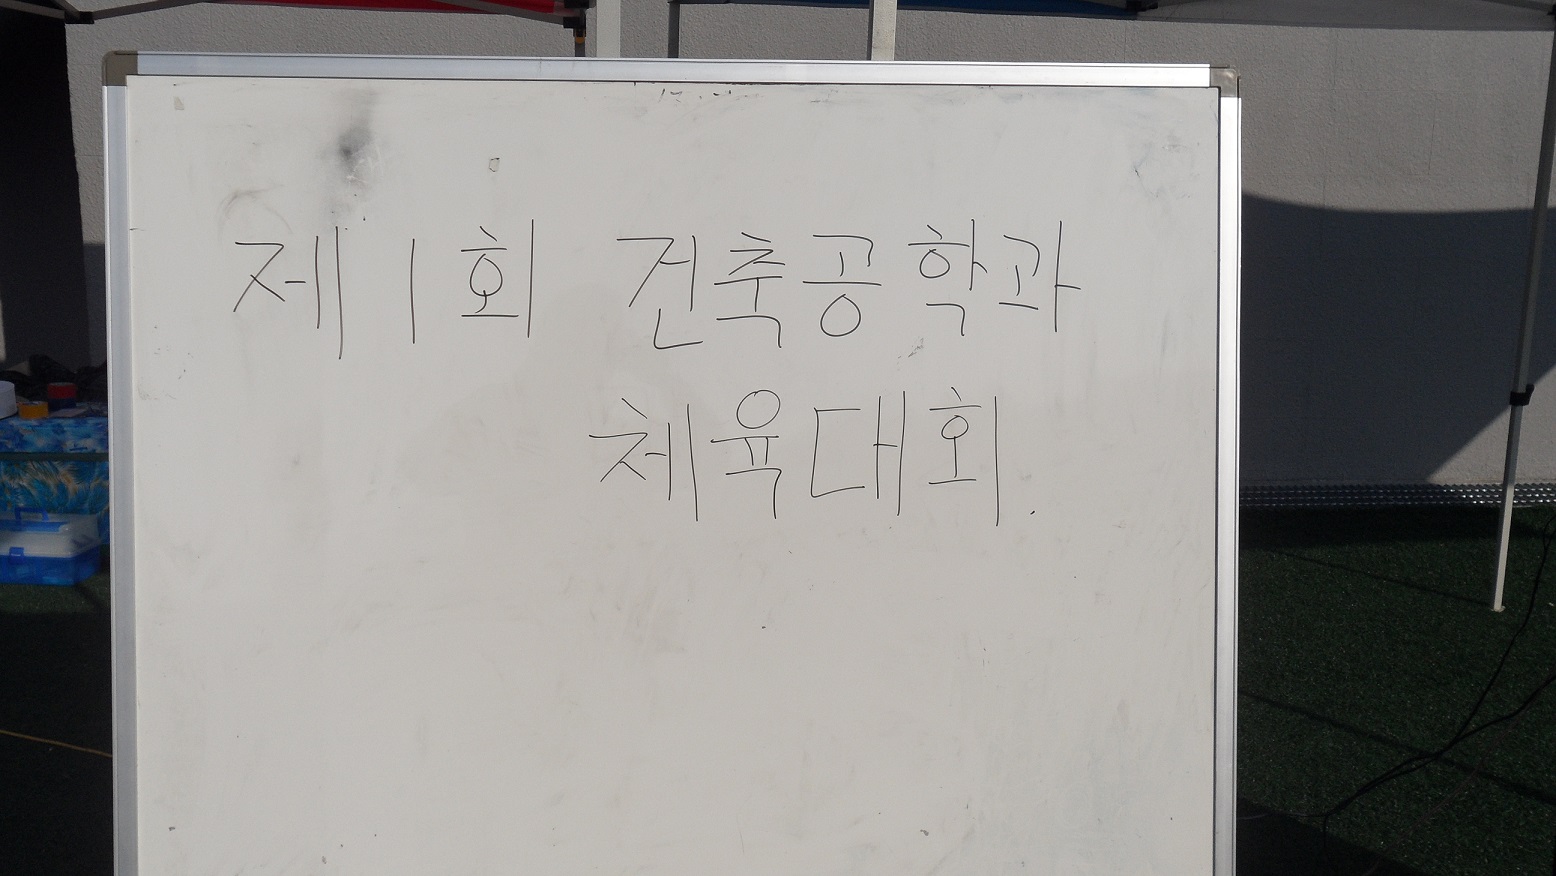 제1회 건축공학과
체육대회.